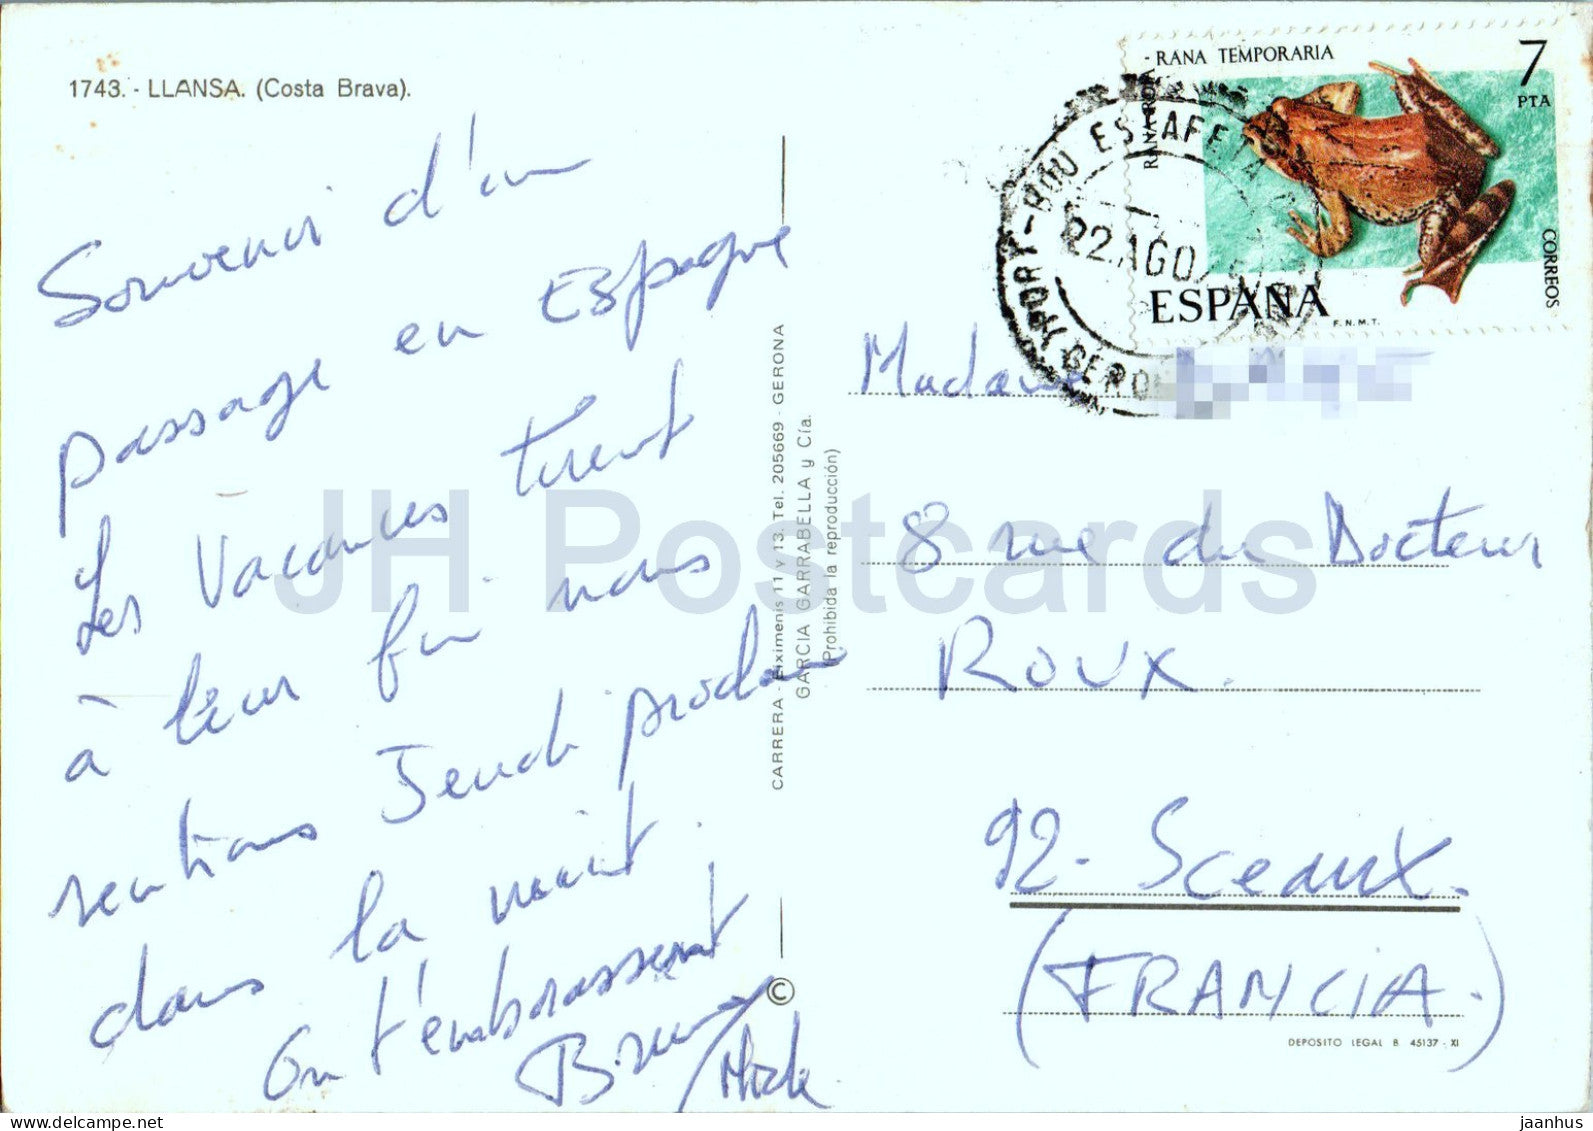 1743. - LLANSA. (Costa Brava).
Souvenir d'un
passage en Espagne
Les Vacances tirent
à leur fin nous
rentrons Jeudi prochain
dans la nuit.
On t'embrassent
Bruno / Mick
CARRERA - Eiximenis 11 y 13. Tel. 205669 - GERONA
GARCIA GARRABELLA y Cía.
(Prohibida la reproducción)
©
- RANA TEMPORARIA
7
PTA
CORREOS
ESPAÑA
F.N.M.T.
PORT-BOU ESTAFETA
22 AGO
GERONA
Madame
8 rue du Docteur
ROUX.
92 - Sceaux.
(FRANCIA.)
DEPOSITO LEGAL B. 45137 - XI
JH Postcards
jaanhus © www.delcampe.net